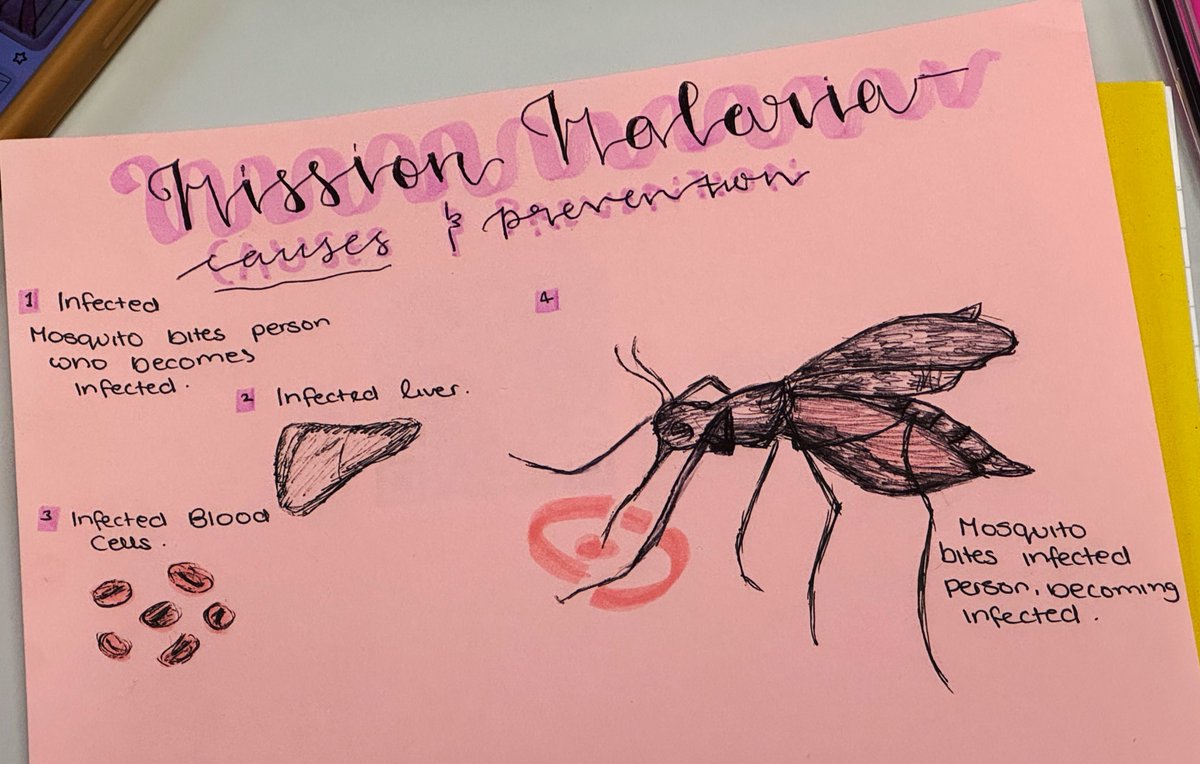 Mission Malaria
causes & prevention
1 Infected
Mosquito bites person
who becomes
infected.
2 Infected liver.
3 Infected Blood
Cells.
4
Mosquito
bites infected
person, becoming
infected.